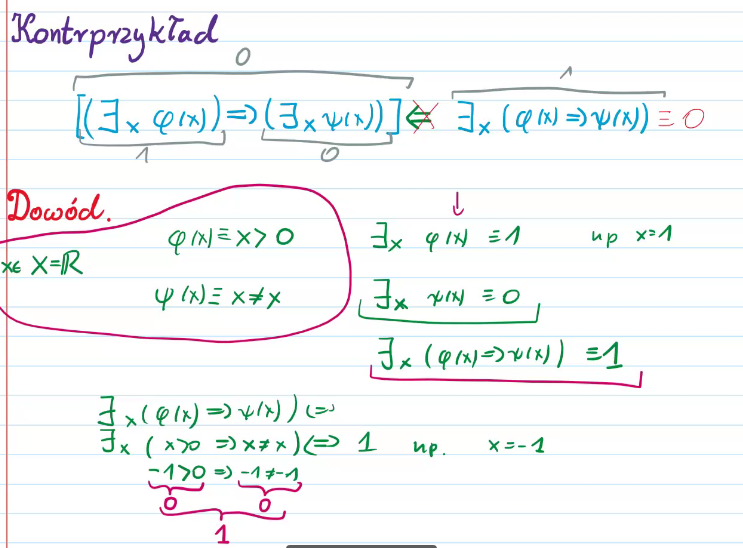 Kontrprzykład
0 1
[(∃x φ(x)) => (∃x ψ(x))] <= ∃x (φ(x) => ψ(x)) ≡ 0
1 0
Dowód.
φ(x) ≡ x > 0 ∃x φ(x) ≡ 1 np x=1
x∈ X=ℝ
ψ(x) ≡ x ≠ x ∃x ψ(x) ≡ 0
∃x (φ(x) => ψ(x)) ≡ 1
∃x (φ(x) => ψ(x)) <=>
∃x (x>0 => x≠x) <=> 1 np. x=-1
-1>0 => -1≠-1
0 0
1